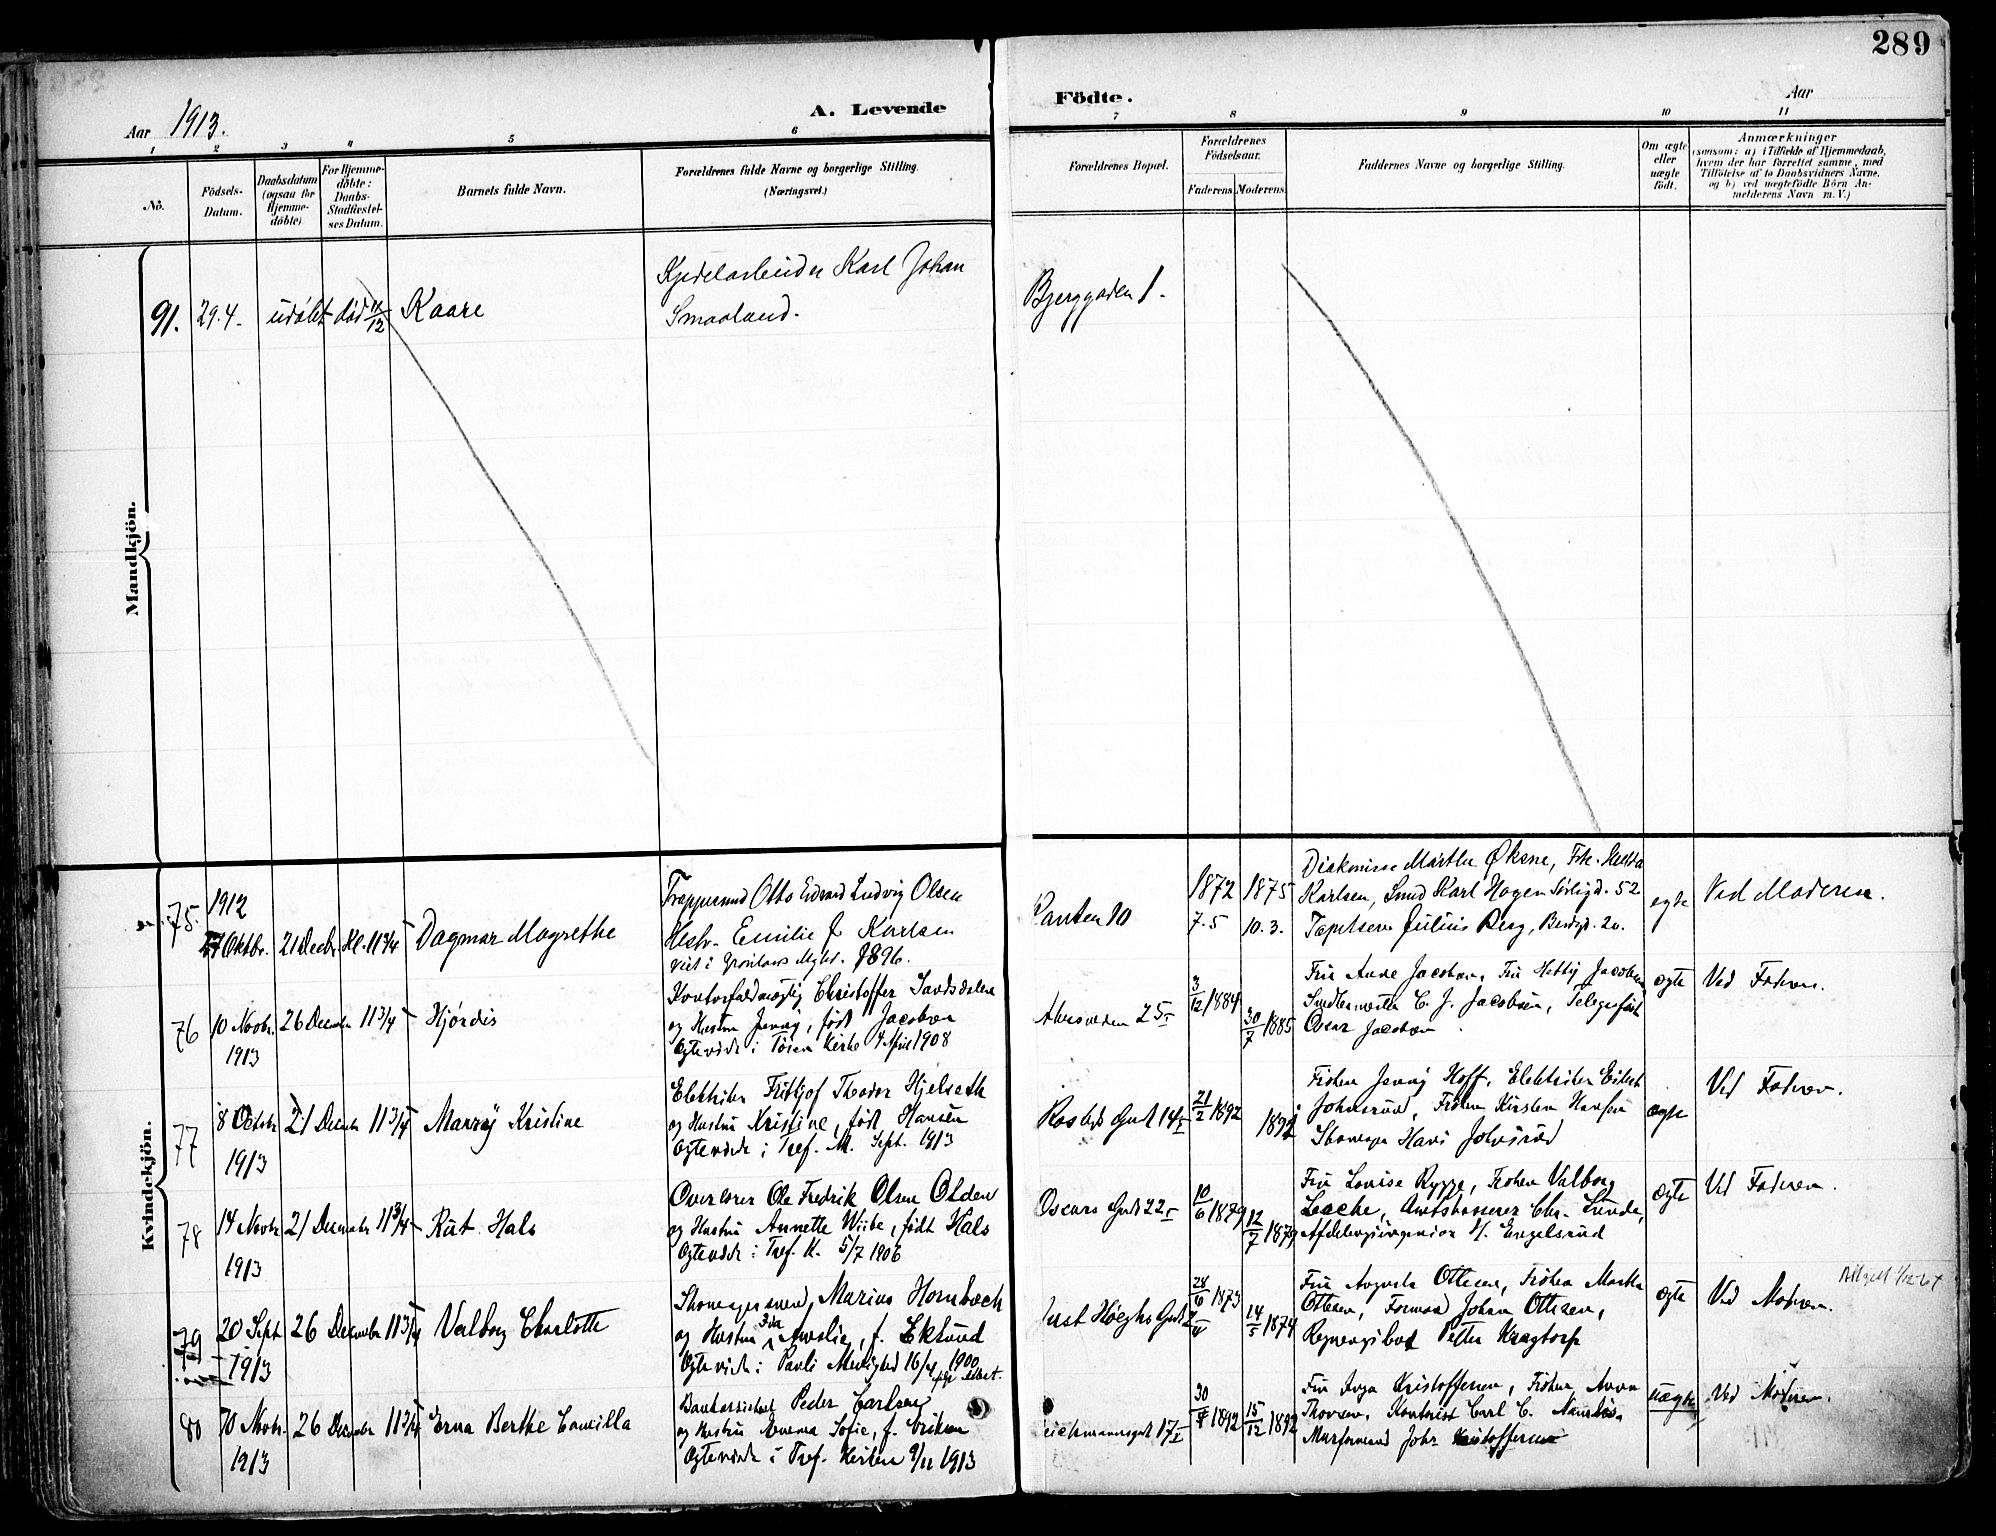 289
Aar 1913.
A. Levende
Födte.
Aar
1 2 3 4 5 6 7 8 9 10 11
No.
Födsels-
Datum.
Daabsdatum
(ogsaa for
Hjemme-
döbte)
For Hjemme-
döbte:
Daabs-
Stadfæstel-
ses Datum.
Barnets fulde Navn.
Forældrenes fulde Navne og borgerlige Stilling.
(Næringsvei.)
Forældrenes Bopæl.
Forældrenes
Födselsaar.
Faderens.
Moderens.
Faddernes Navne og borgerlige Stilling.
Om ægte
eller
uægte
födt.
Anmærkninger
(saasom: a) i Tilfælde af Hjemmedaab,
hvem der har forrettet samme, med
Tilföielse af to Daabsvidners Navne,
og b) ved uægtefödte Börn An-
melderens Navn m.V.)
Mandkjön.
91. 29.4. udøbt død 11/12 Kaare
Kjedelarbeider Karl Johan
Smaaland.
Bjerggaden 1.
Kvindekjön.
75 1912
Oktbr. 21 Decbr. Kl. 11 3/4 Dagmar Magrethe
Otto Edvard Ludvig Olsen
Hustr. Emilie f. Karlsen
viet i Grønlands Mghd. 1896.
10
1872
7.5
1875
10.3.
Diakonisse Marthe Øksne, Frk. Hulda
Karlsen, Smed Karl Hagen Sørligd. 52
Tapetserer Julius Berg, 20.
egte
Ved Moderen.
76 10 Novbr. 1913 26 Decembr 11 3/4 Hjördis
Kontorfuldmægtig Christoffer
og Hustru Jenny, født Jacobsen
Ægteviede i Kirke April 1908
25 I
3/12 1884
30/7 1885
Fru Anne Jacobsen, Fru Hetty Jacobsen
C. J. Jacobsen,
Oscar Jacobsen
ægte
Ved Faderen.
77 8 Octobr 1913 21 Decembr 11 3/4 Kristine
Elektriker Fritjof Theodor Hjelseth
og Hustru Kristine, født Hansen
Ægteviede i Tref. M. Sept. 1913
14 I
21/2 1892
Frøken Jenny Hoff, Elektriker
Johnsrud, Frøken Kirsten Hansen
Hans Johnsrud
ægte
Ved Faderen.
78 14 Novbr 1913 21 Decembr 11 3/4 Rut Hals
Overlærer Ole Fredrik Olsen Olden
og Hustru Annette Wiibe, født Hals
Ægteviede i Tref. K. 5/7 1906
Oscars Gade 22 I
10/6 1879
12/7 1879
Fru Louise Rygge, Frøken Valborg
Lache, Amtskasserer Chr. Lunde,
Afdelingsingeniør H. Engelsrud
ægte
Ved Faderen.
79 20 Sept 1913 26 Decembr 11 3/4 Valborg Charlotte
Marius Hornbæck
og Hustru Ida Amalie, f. Eklund
Ægteviede i Pauli Menighed 16/4 1900
Just Høeghs Gade
28/6 1873
14/5 1874
Fru Augusta Ottesen, Frøken Martha
Ottesen, Formand Johan Ottesen,
Petter Kragtorp
ægte
Ved Moderen.
80 10 Novbr. 1913 26 Decembr 11 3/4 Erna Berthe Camilla
Peder Carlsen
og Hustru Emma Sofie, f. Eriksen
Ægteviede i Tref. Kirken 9/11 1913
17 I
30/8 1892
15/12 1892
Fru Inga Kristoffersen, Frøken Anna
Thorsen, Kontorist Carl C.
Murformand Johs. Kristoffersen
uægte
Ved Moderen.